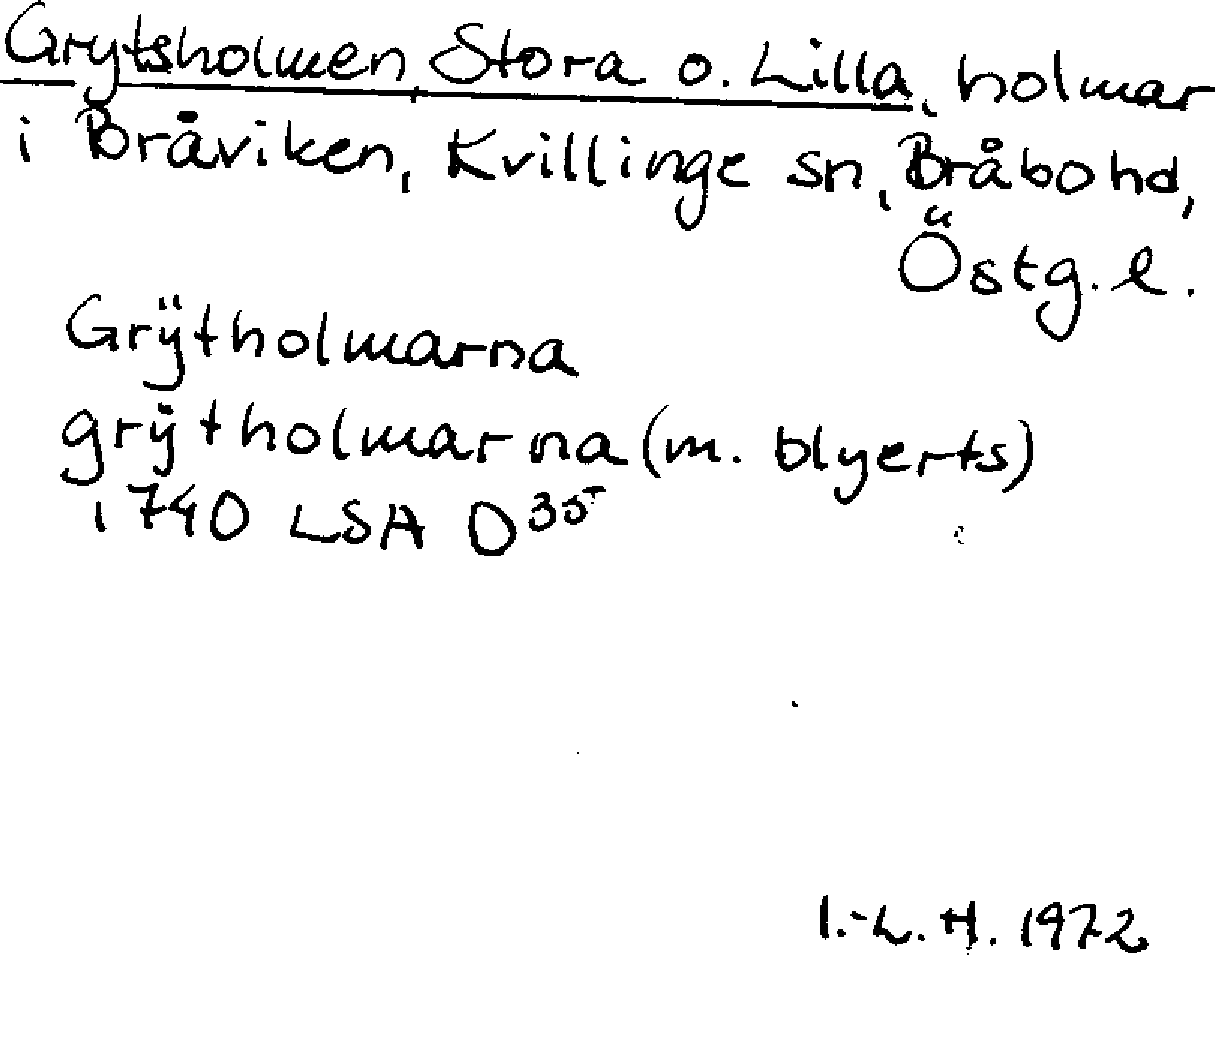 Grytsholmen, Stora o. Lilla, holmar
i Bråviken, Kvillinge sn, Bråbo hd,
Östg. l.
Grÿtholmarna
grÿtholmarna (m. blyerts)
1740 LSA D 35
I.-L. H. 1972